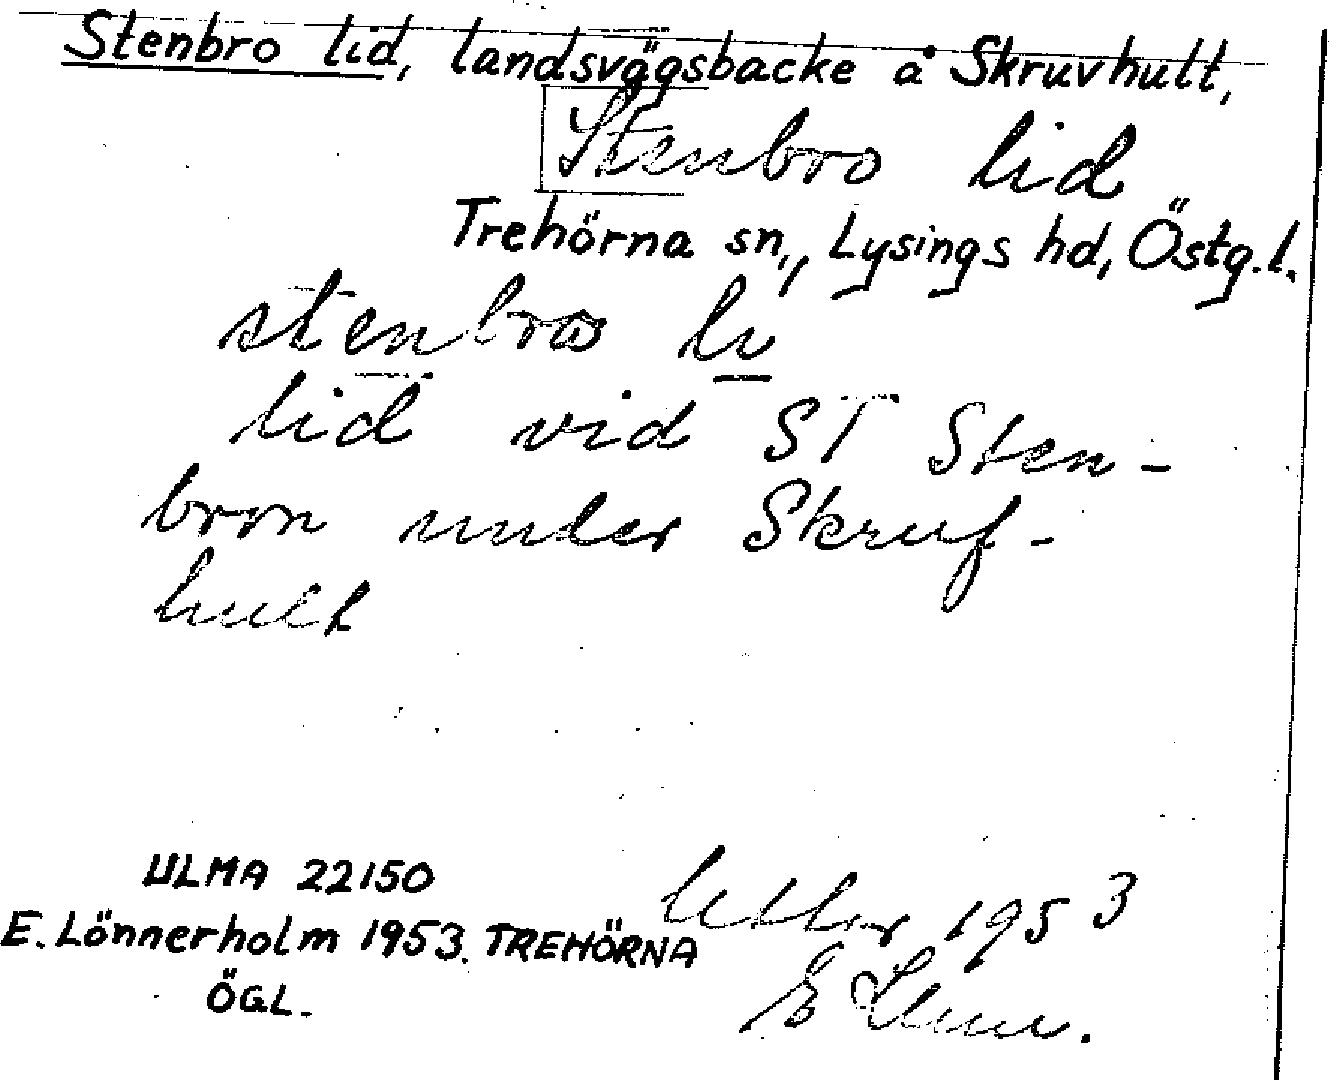 Stenbro lid, landsvägsbacke å Skruvhult,
Stenbro lid
Trehörna sn., Lysings hd, Östg.l.
stenbro li
lid vid ST Sten-
bron under Skruf-
hult
ULMA 22150
E. Lönnerholm 1953. TREHÖRNA
ÖGL.
1953
E